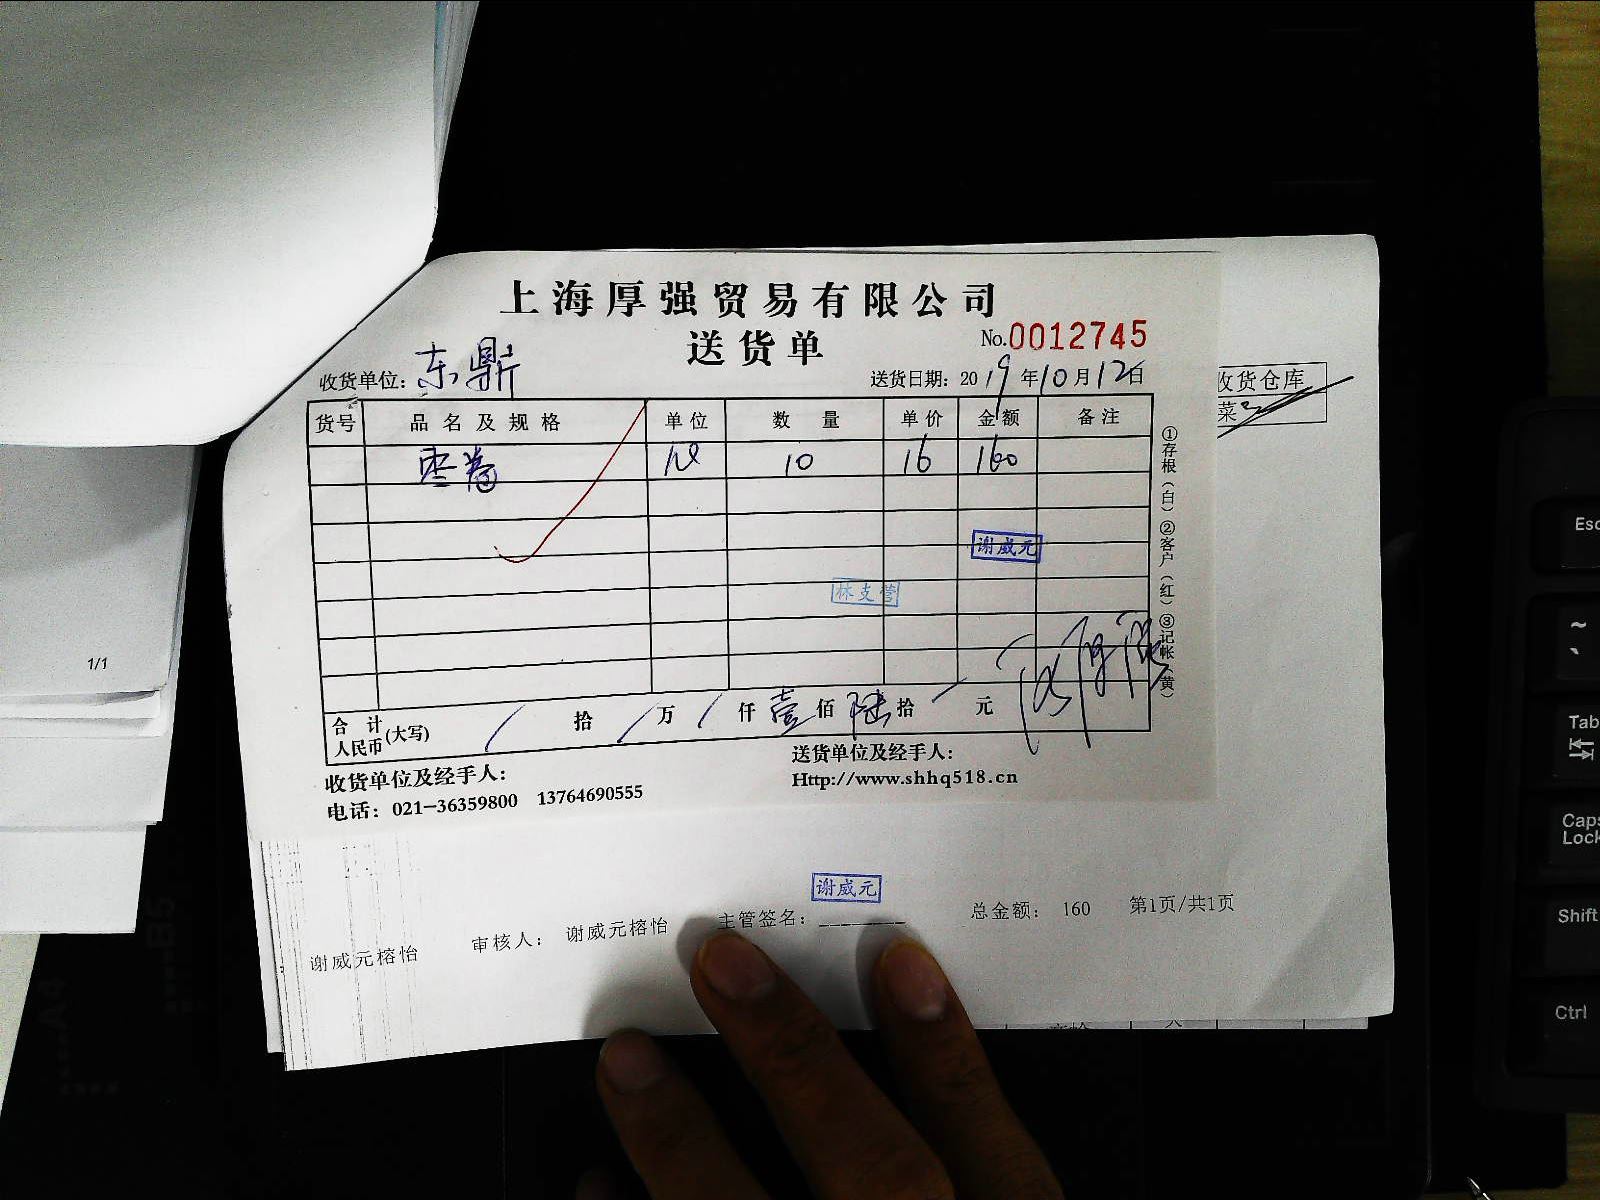 上海厚强贸易有限公司
送货单
No.0012745
收货单位：东鼎
送货日期：2019年10月12日
货号 品名及规格 单位 数量 单价 金额 备注
枣卷 10 16 160
谢威元
林支管
合计人民币(大写) / 拾 / 万 / 仟 壹 佰 陆 拾 元
①存根（白）②客户（红）③记帐（黄）
收货单位及经手人：
送货单位及经手人：
电话：021-36359800 13764690555
Http://www.shhq518.cn
收货仓库
菜
1/1
谢威元
谢威元榕怡 审核人： 谢威元榕怡 主管签名： 总金额： 160 第1页/共1页
Esc
~
`
Tab
Caps Lock
Shift
Ctrl